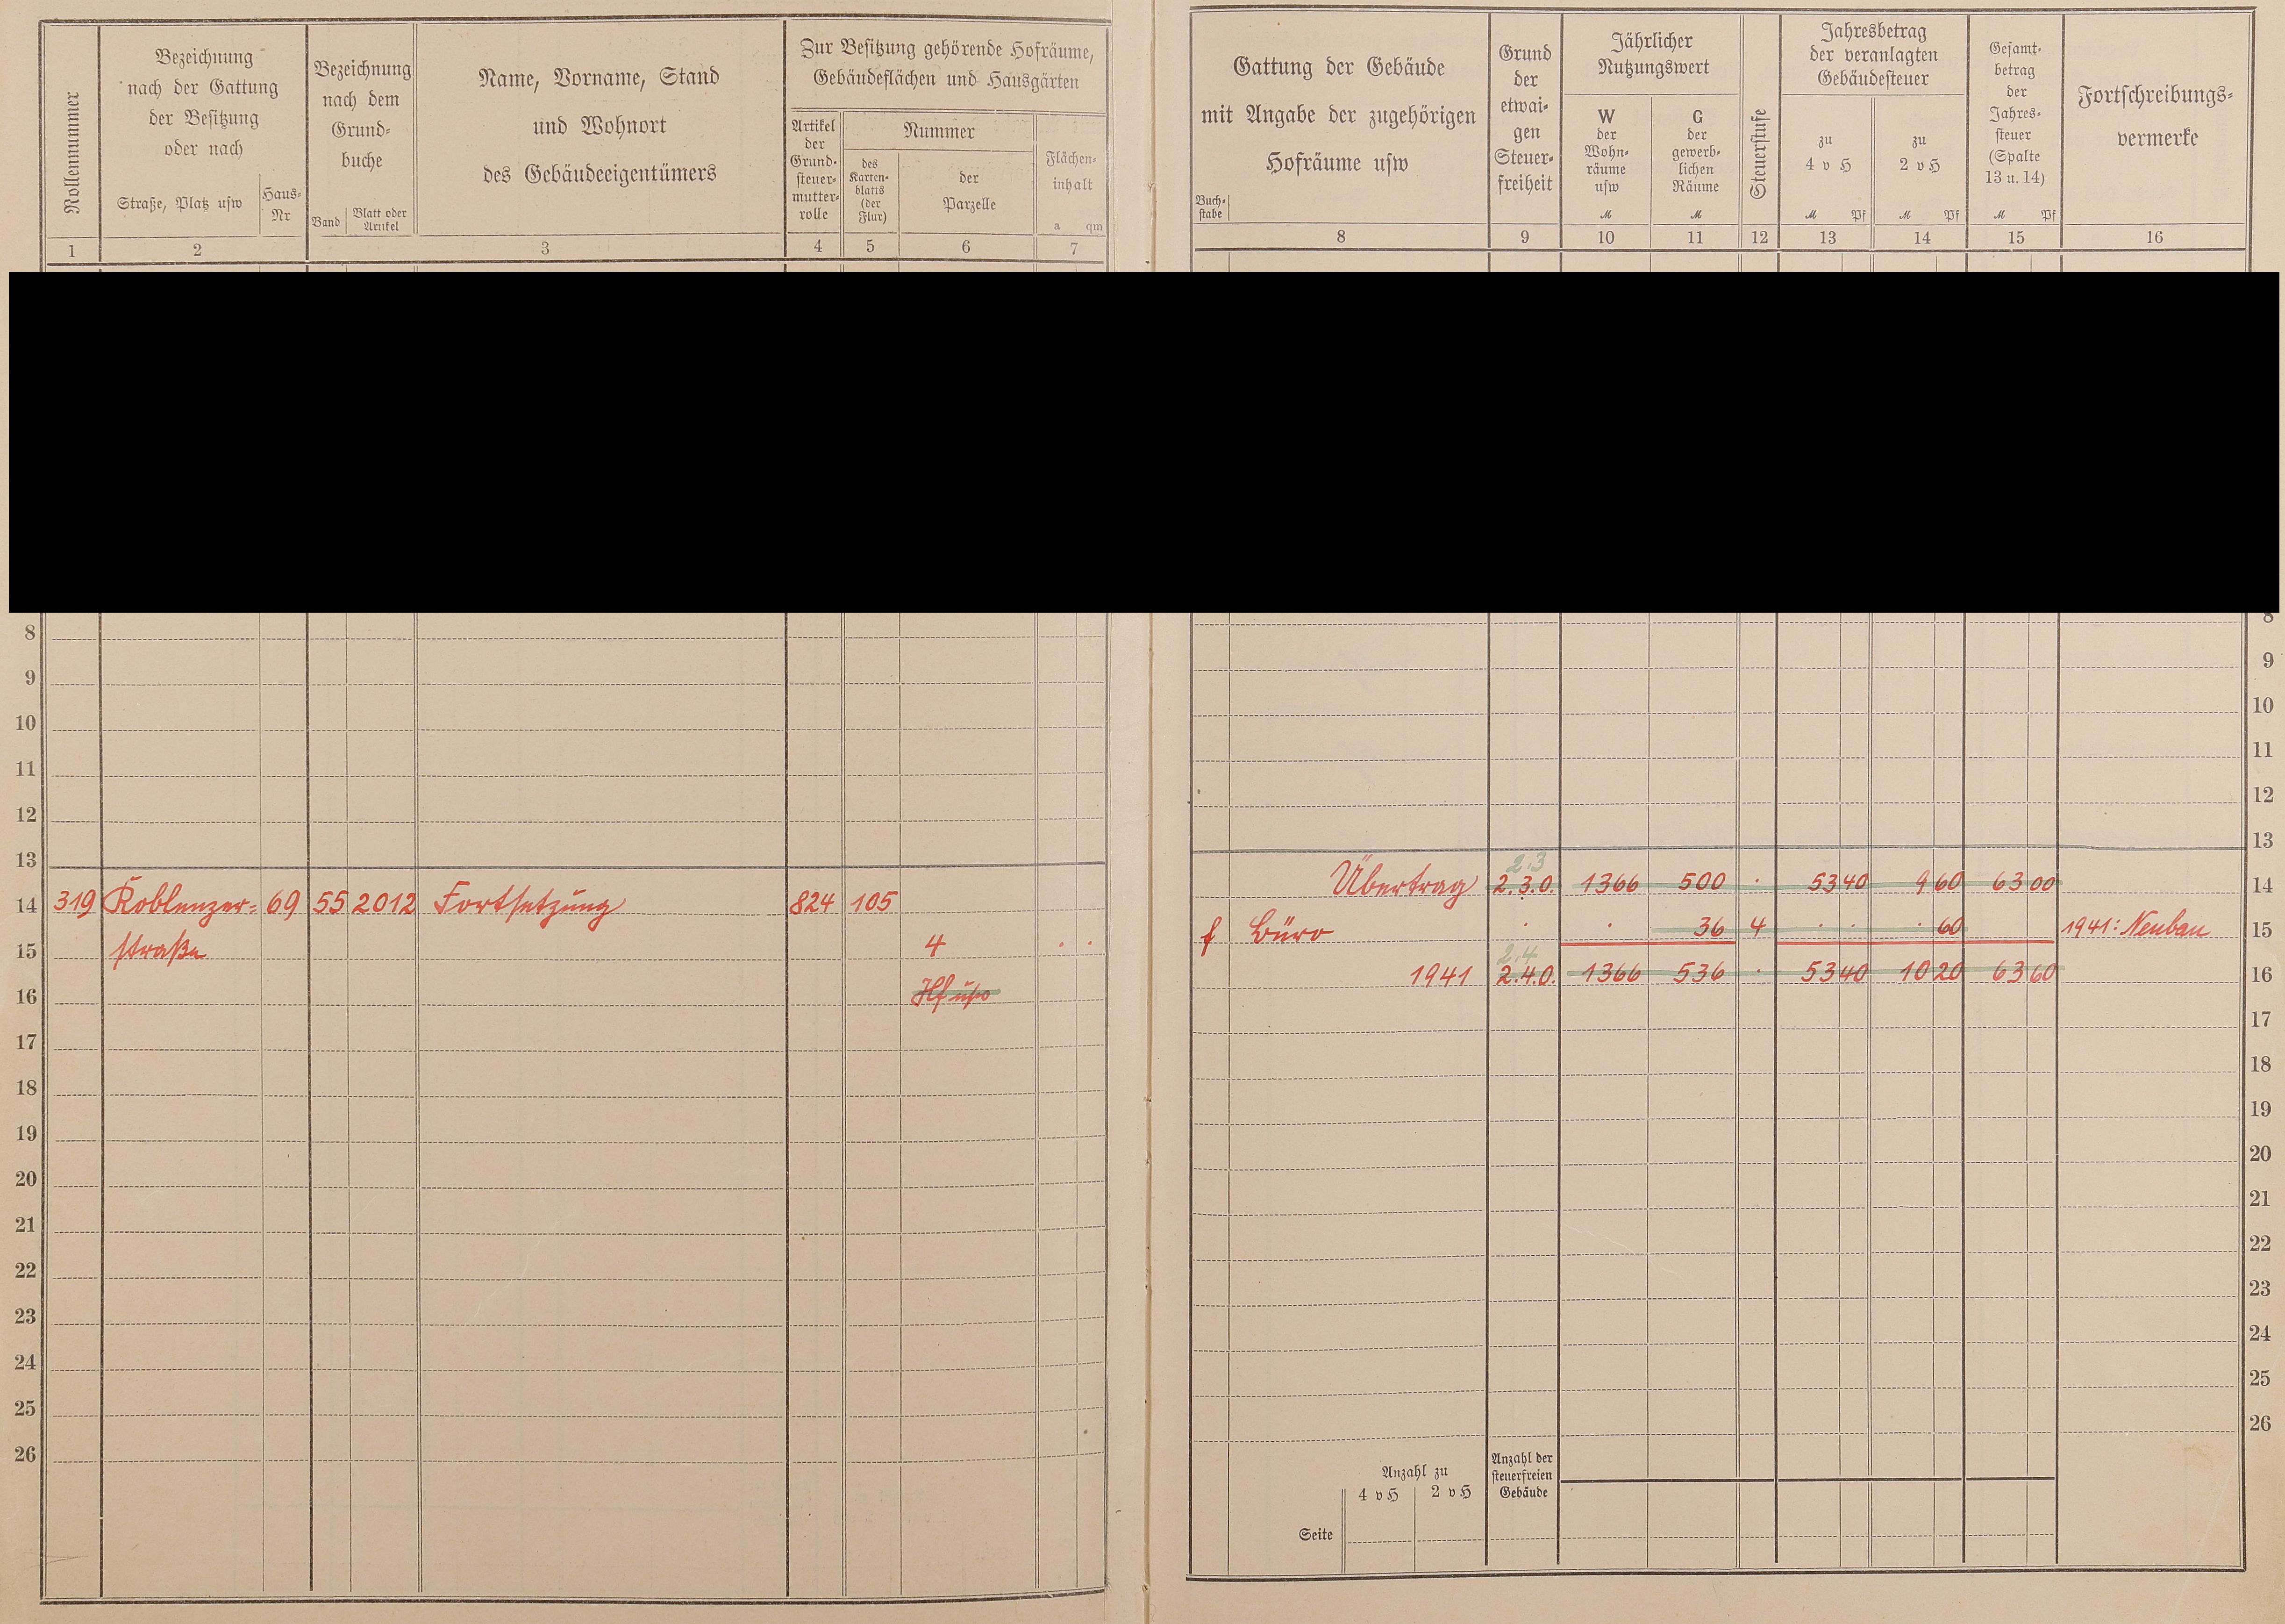 Rollennummer
Bezeichnung
nach der Gattung
der Besitzung
oder nach
Straße, Platz usw
Haus-
Nr
Bezeichnung
nach dem
Grund-
buche
Band
Blatt oder
Artikel
Name, Vorname, Stand
und Wohnort
des Gebäudeeigentümers
Zur Besitzung gehörende Hofräume,
Gebäudeflächen und Hausgärten
Artikel
der
Grund-
steuer-
mutter-
rolle
Nummer
des
Karten-
blatts
(der
Flur)
der
Parzelle
Flächen-
inhalt
a qm
1 2 3 4 5 6 7
8
9
10
11
12
13
14 319 Koblenzer- 69 55 2012 Fortsetzung 824 105
15 straße 4 . .
16 Hf usw
17
18
19
20
21
22
23
24
25
26
Gattung der Gebäude
mit Angabe der zugehörigen
Hofräume usw
Buch-
stabe
Grund
der
etwai-
gen
Steuer-
freiheit
Jährlicher
Nutzungswert
W
der
Wohn-
räume
usw
M
G
der
gewerb-
lichen
Räume
M
Steuerstufe
Jahresbetrag
der veranlagten
Gebäudesteuer
zu
4 v H
M Pf
zu
2 v H
M Pf
Gesamt-
betrag
der
Jahres-
steuer
(Spalte
13 u. 14)
M Pf
Fortschreibungs-
vermerke
8 9 10 11 12 13 14 15 16
8
9
10
11
12
13
2.3
Übertrag 2.3.0. 1366 500 . 53 40 9 60 63 00 14
f Büro . . 36 4 . . . 60 1941: Neubau 15
2.4
1941 2.4.0. 1366 536 . 53 40 10 20 63 60 16
17
18
19
20
21
22
23
24
25
26
Anzahl zu
4 v H 2 v H
Anzahl der
steuerfreien
Gebäude
Seite